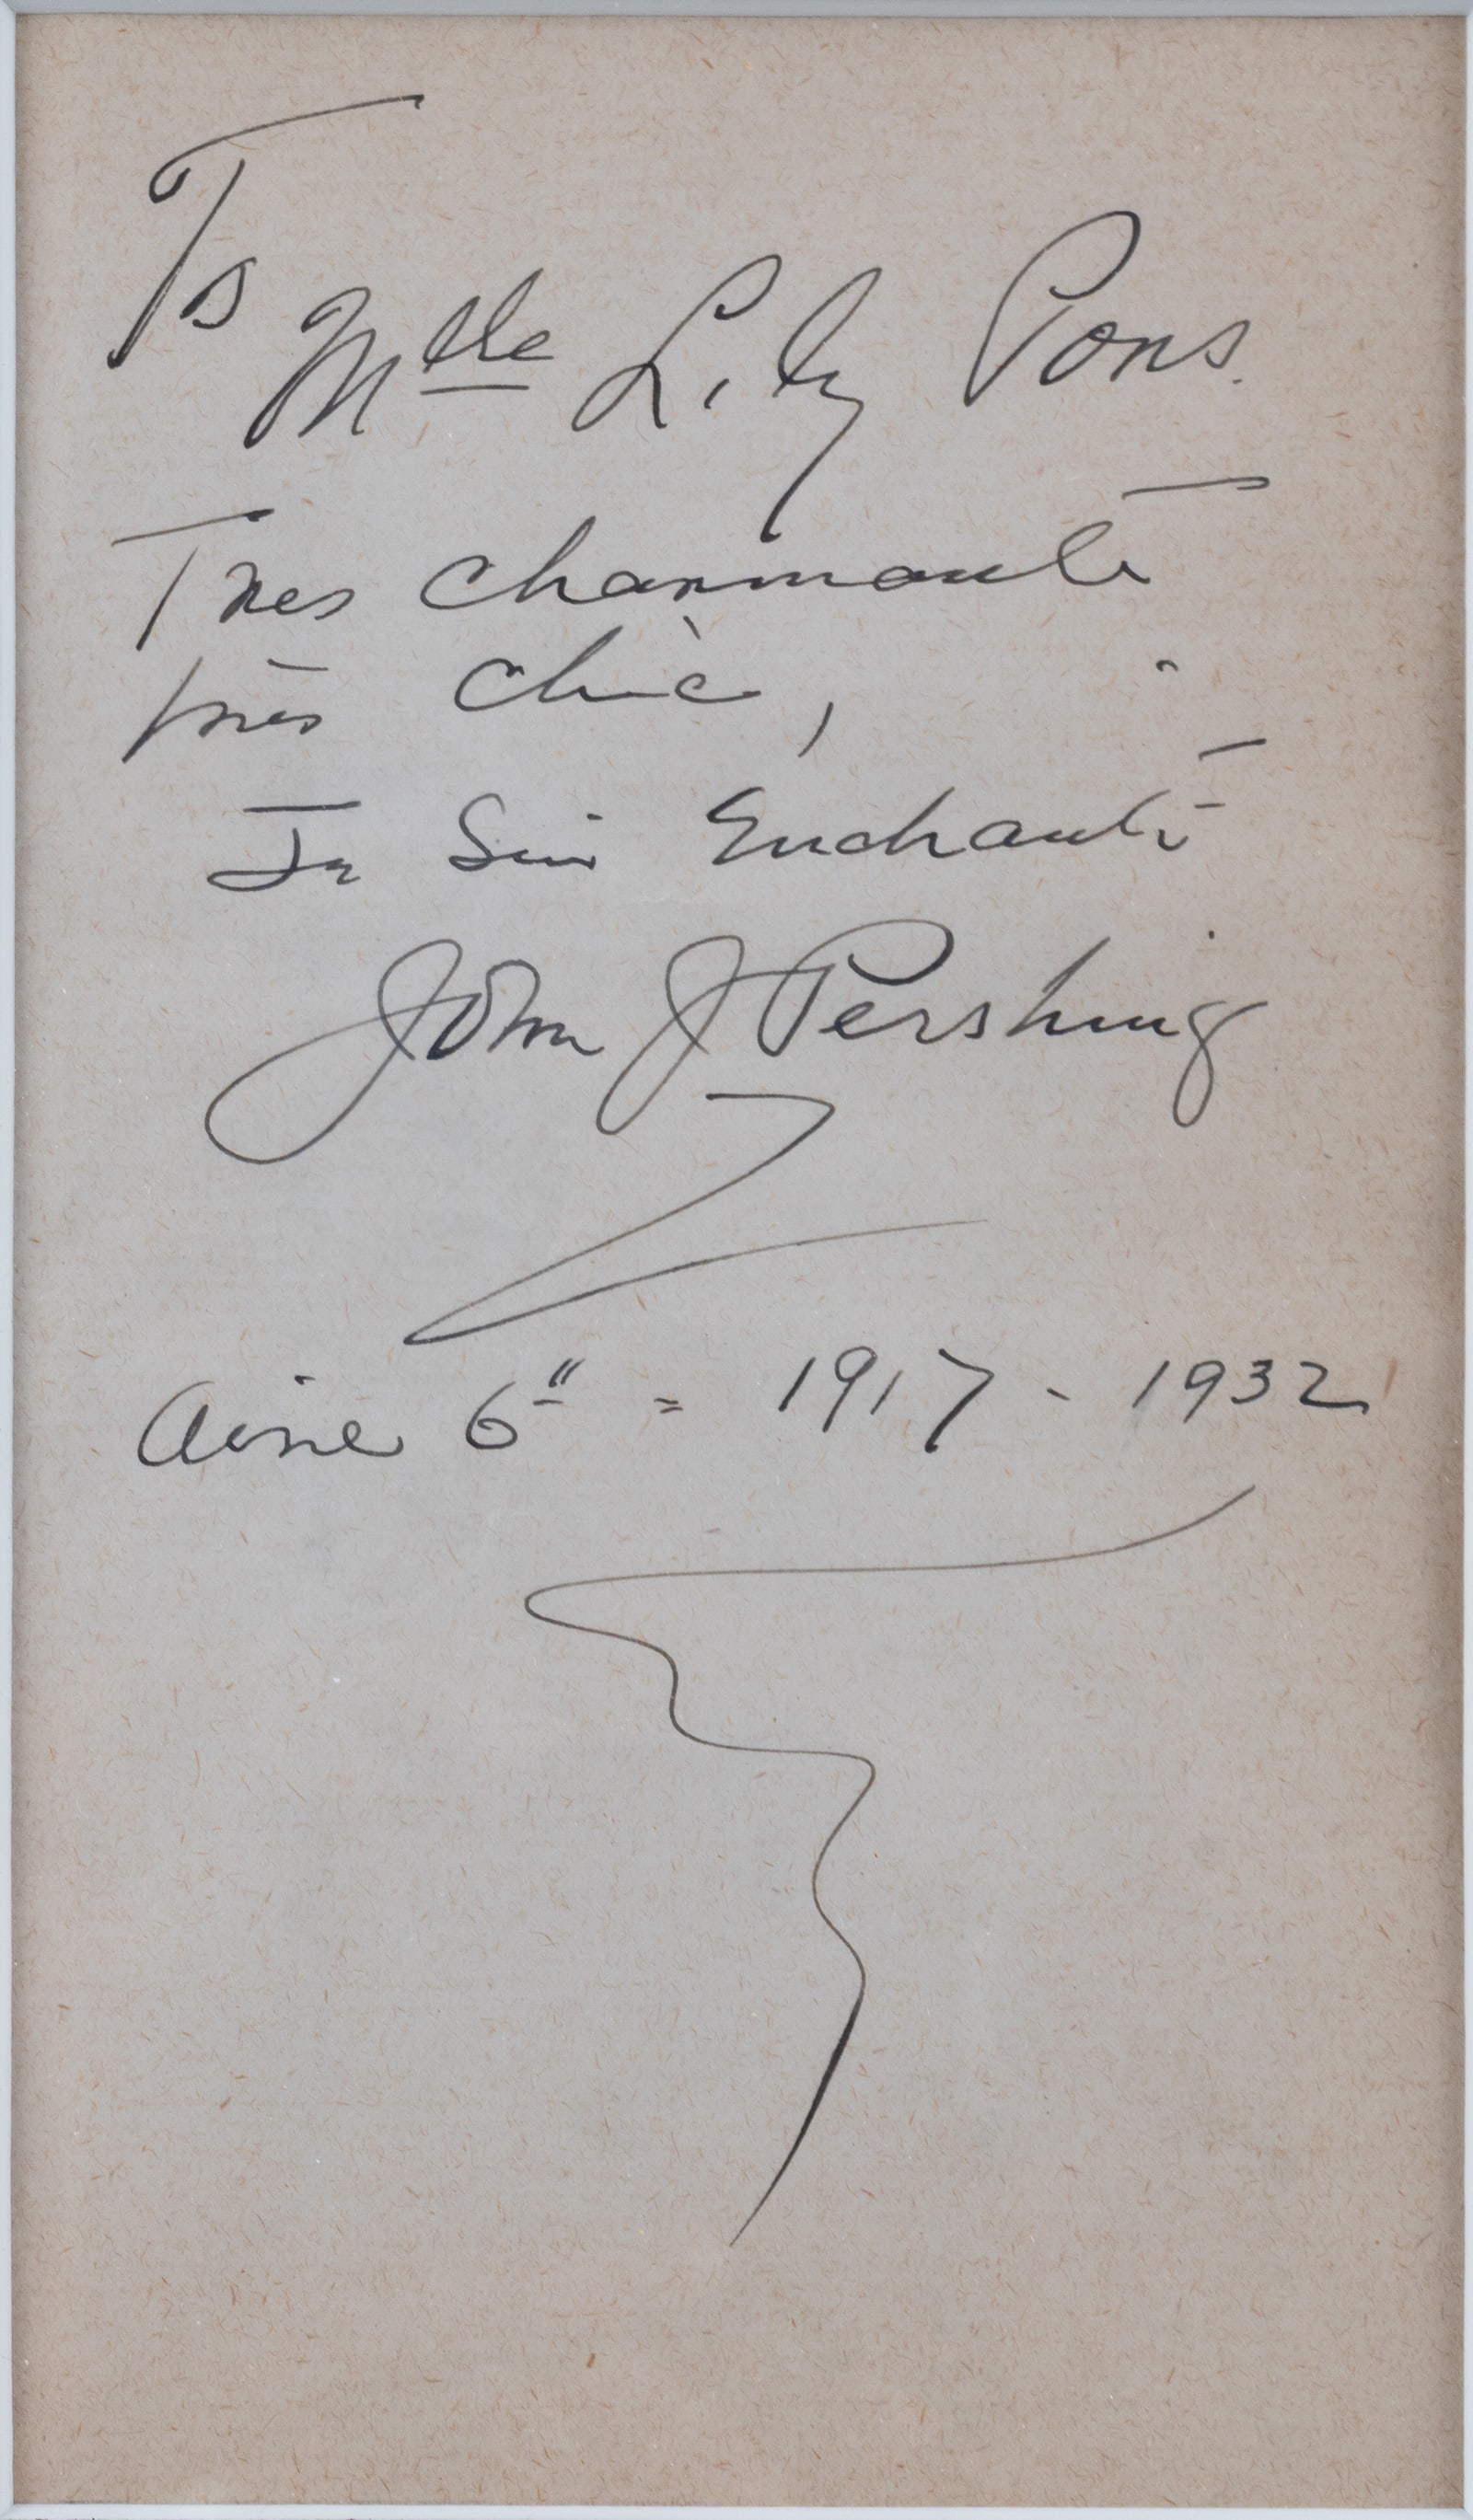 To Mlle Lily Pons.
Tres charmante
très chic,
Je suis Enchanté
John J Pershing
6" = 1917 - 1932